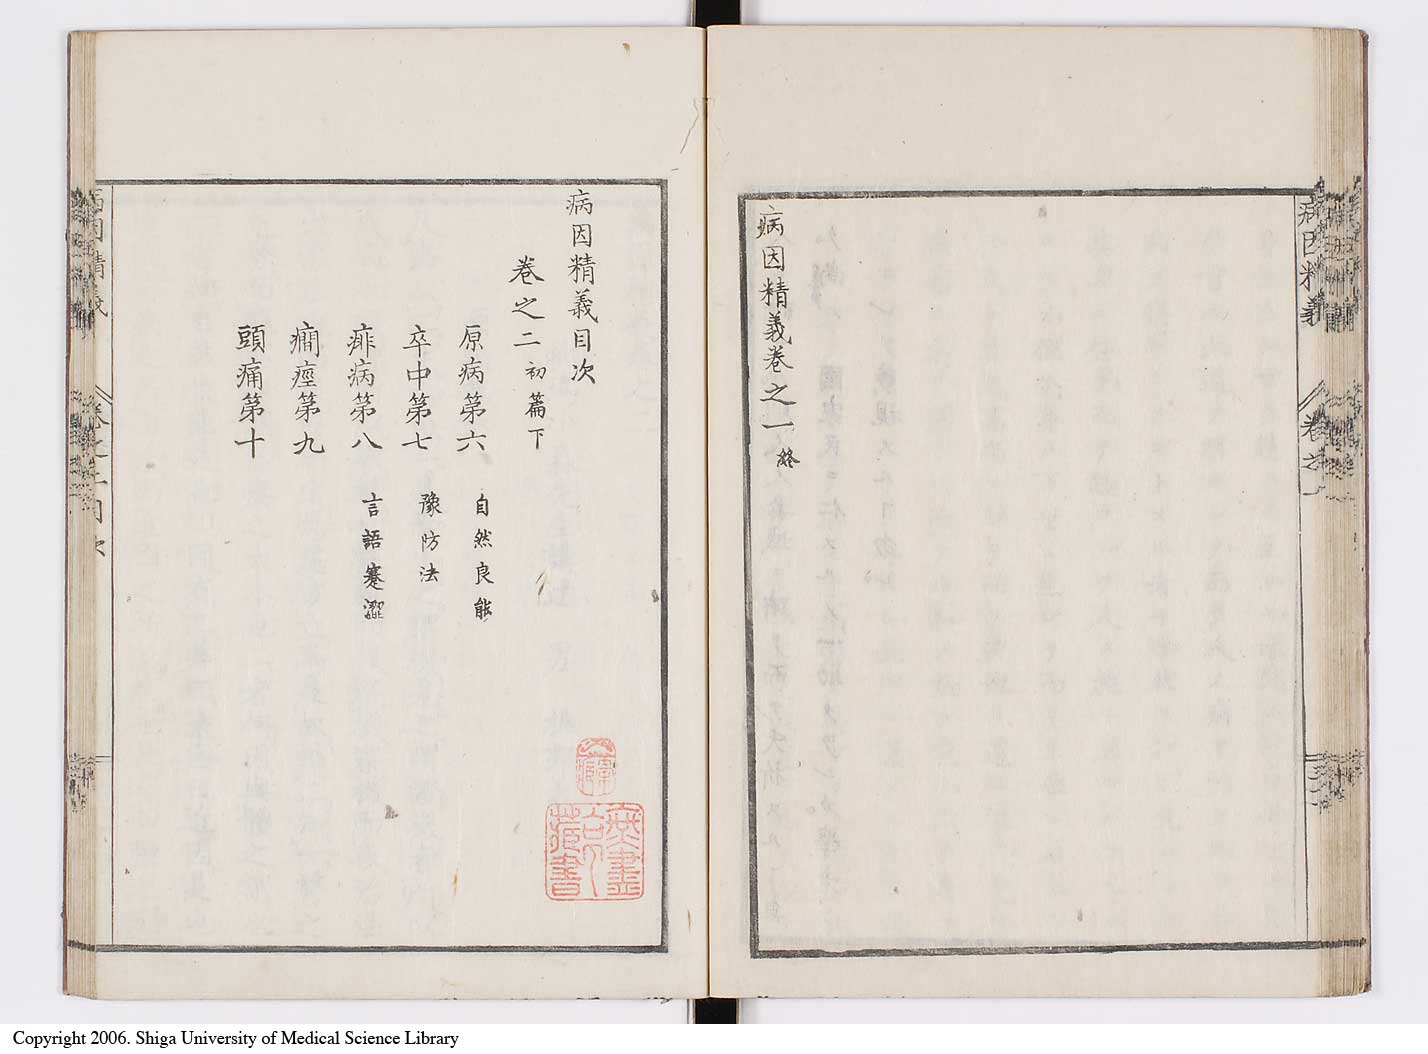 病因精義
卷之一
病因精義卷之一 終
病因精義目次
卷之二 初篇下
原病第六 自然良能
卒中第七 豫防法
痱病第八 言語蹇澀
癇痙第九
頭痛第十
卷之二目次
Copyright 2006. Shiga University of Medical Science Library